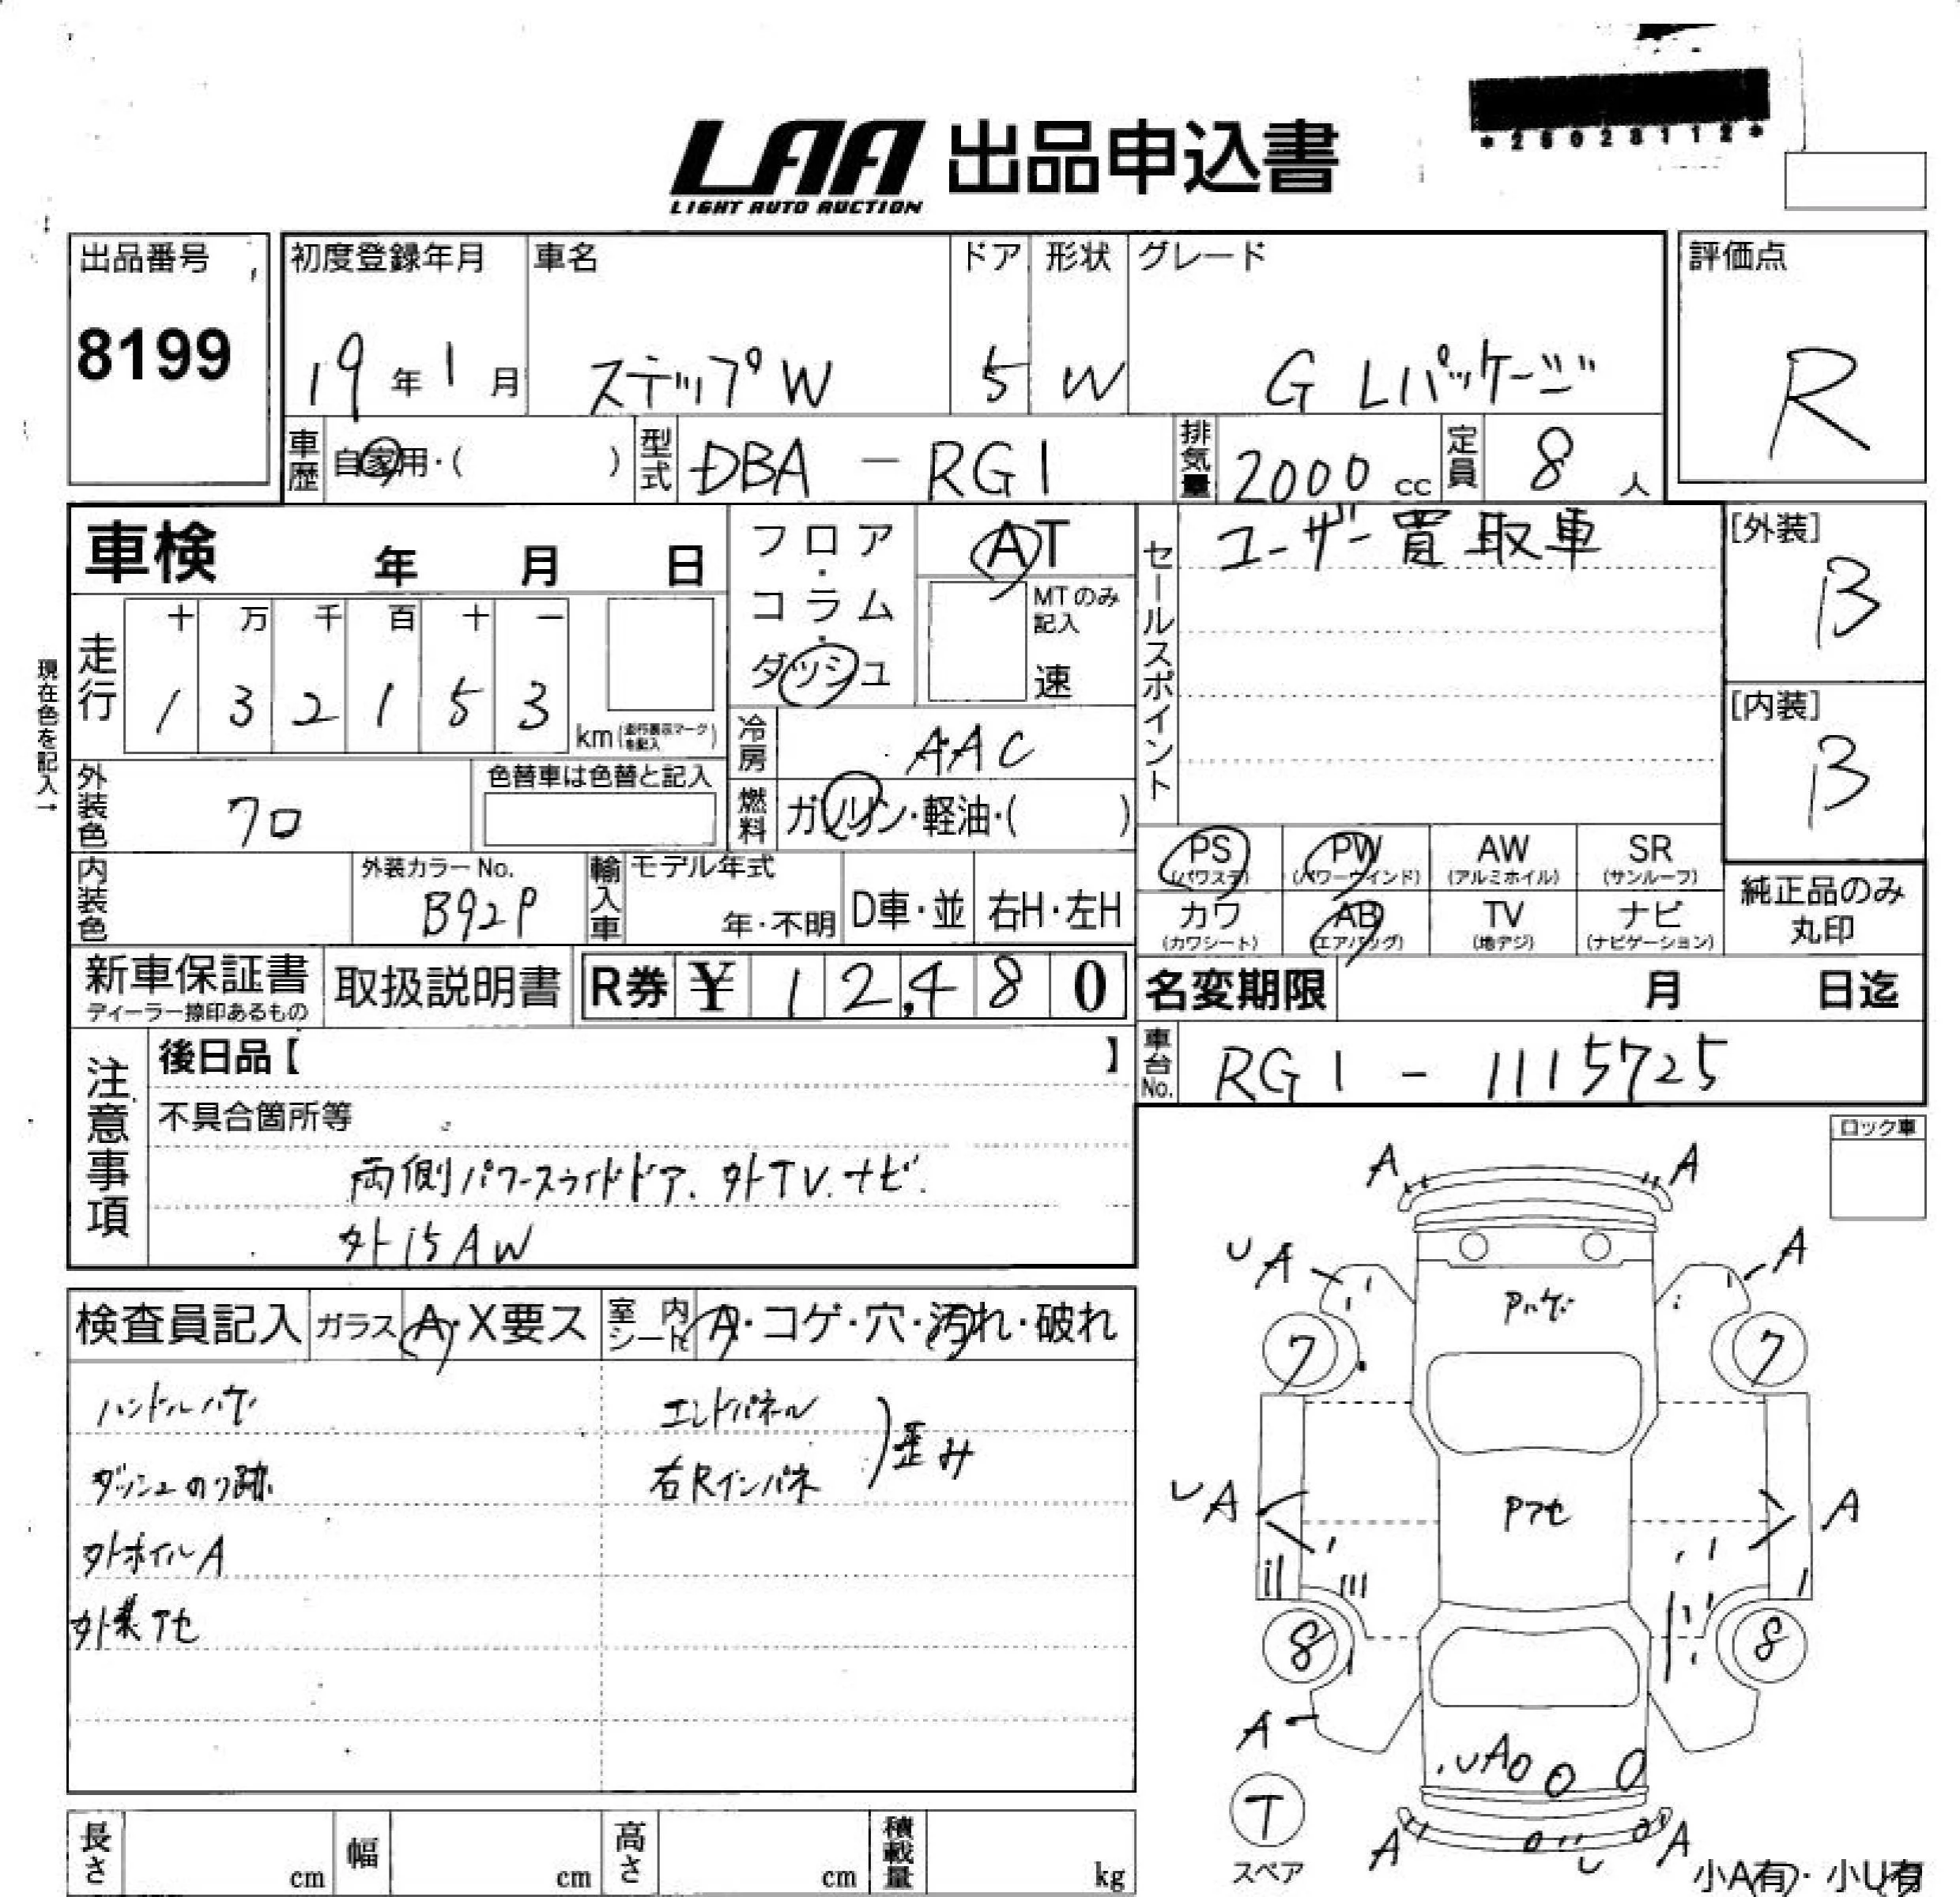 *26028112*
LAA 出品申込書
LIGHT AUTO AUCTION
出品番号
8199
初度登録年月
19年1月
車名
ステップW
ドア
5
形状
W
グレード
G Lパッケージ
評価点
R
車歴
自家用・( )
型式
DBA - RG1
排気量
2000 cc
定員
8 人
車検 年 月 日
フロア・コラム・ダッシュ
AT
MTのみ記入
速
セールスポイント
ユーザー買取車
[外装]
B
[内装]
B
現在色を記入→
走行
十 万 千 百 十 一
1 3 2 1 5 3
km(走行表示マークを記入)
冷房
AAC
燃料
ガソリン・軽油・( )
外装色
クロ
色替車は色替と記入
PS (パワステ)
PW (パワーウインド)
AW (アルミホイル)
SR (サンルーフ)
カワ (カワシート)
AB (エアバッグ)
TV (地デジ)
ナビ (ナビゲーション)
純正品のみ丸印
内装色
外装カラーNo.
B92P
輸入車
モデル年式
年・不明
D車・並
右H・左H
新車保証書
ディーラー捺印あるもの
取扱説明書
R券 ¥ 12,480
名変期限 月 日迄
車台No.
RG1 - 1115725
注意事項
後日品【 】
不具合箇所等
両側パワースライドドア. 外TV.ナビ.
外15AW
ロック車
検査員記入
ガラス
A・X要ス
室内シート
A・コゲ・穴・汚れ・破れ
ハンドルハゲ
エンドパネル
右Rインパネ
歪み
ダッシュのり跡
外ホイルA
外装アセ
A A
UA A
Pハゲ
7 7
UA A
Pアセ
8 8
A
UA
T
スペア
A U A
小A有・小U有
長さ cm
幅 cm
高さ cm
積載量 kg